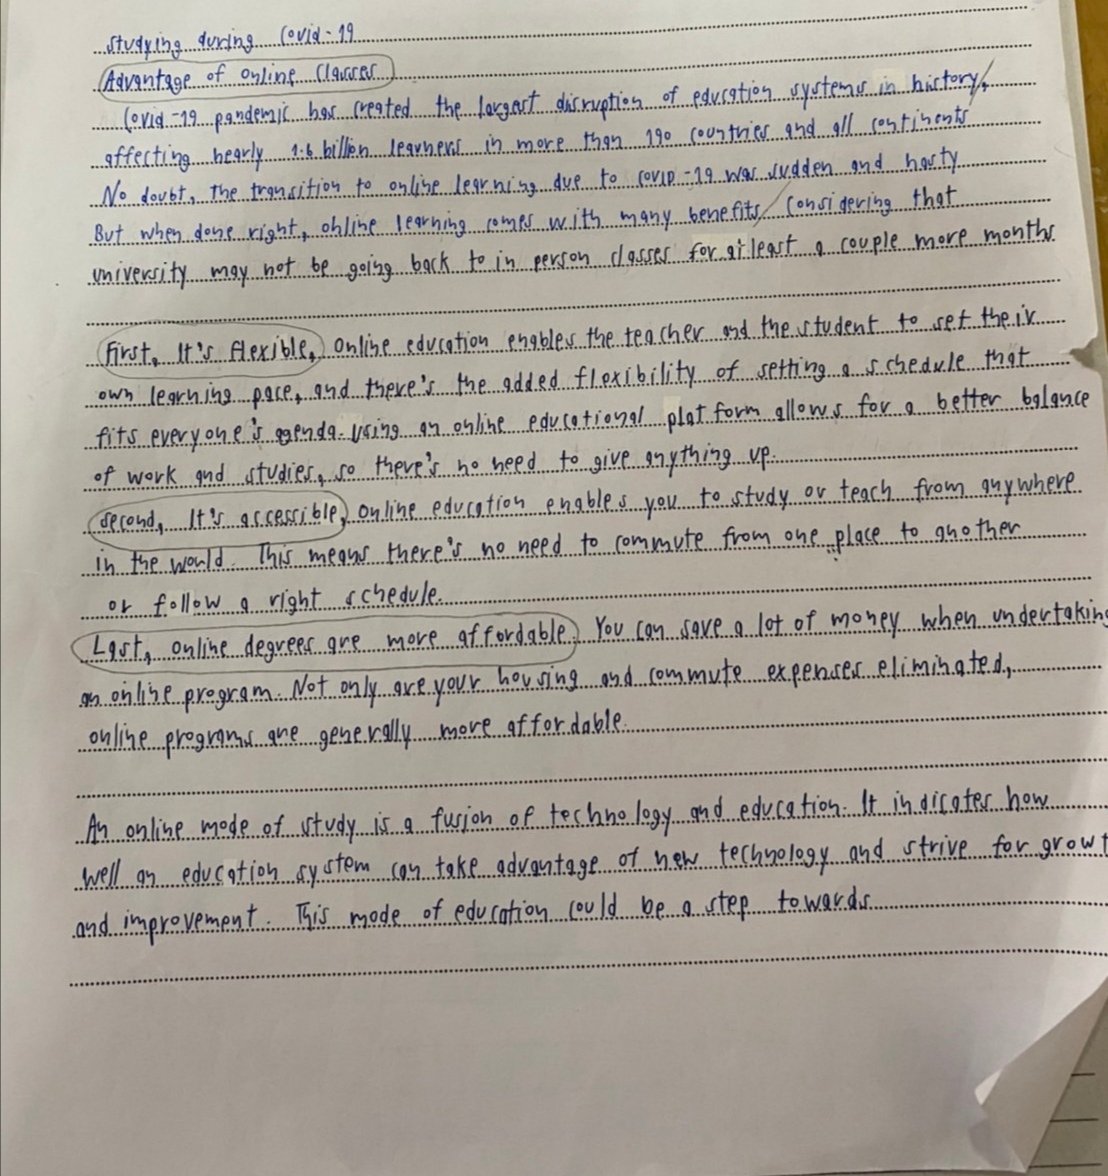 studying during Covid-19
Advantage of online Classes
Covid-19 pandemic has created the largest disruption of education systems in history,
affecting nearly 1.6 billion learners in more than 190 countries and all continents
No doubt, The transition to online learning due to COVID-19 was sudden and hasty
But when done right, online learning comes with many benefits/ Considering that
university may not be going back to in person classes for at least a couple more months
First, It's flexible, Online education enables the teacher and the student to set their
own learning pace, and there's the added flexibility of setting a schedule that
fits everyone's agenda. Using an online educational platform allows for a better balance
of work and studies, so there's no need to give anything up.
Second, It's accessible, Online education enables you to study or teach from anywhere
in the world. This means there's no need to commute from one place to another
or follow a right schedule.
Last, online degrees are more affordable. You can save a lot of money when undertaking
an online program. Not only are your housing and commute expenses eliminated,
online programs are generally more affordable.
An online mode of study is a fusion of technology and education. It indicates how
well an education system can take advantage of new technology and strive for growt
and improvement. This mode of education could be a step towards